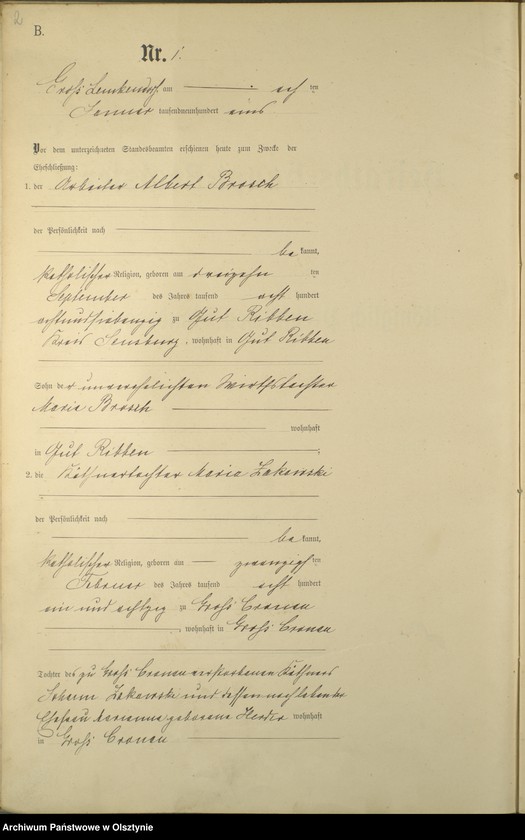 B.
Nr. 1.
Groß Lemkendorf, am acht ten
Januar tausendneunhundert eins
Vor dem unterzeichneten Standesbeamten erschienen heute zum Zwecke der
Eheschließung:
1. der Arbeiter Albert Brosch
der Persönlichkeit nach
be kannt,
katholischer Religion, geboren am dreizehn ten
September des Jahrs tausend acht hundert
achtundsiebenzig zu Gut Ribben
Kreis Sensburg, wohnhaft in Gut Ribben
Sohn der unverehelichten Wirthstochter
Maria Brosch
wohnhaft
in Gut Ribben
2. die Käthnertochter Maria Lakowski
der Persönlichkeit nach
be kannt,
katholischer Religion, geboren am zwanzigsten
Februar des Jahrs tausend acht hundert
ein und achtzig zu Groß Cronau
, wohnhaft in Groß Cronau
Tochter des zu Groß Cronau verstorbenen Käthners
Johann Lakowski und dessen nachlebender
Ehefrau geborene wohnhaft
in Groß Cronau
Archiwum Państwowe w Olsztynie